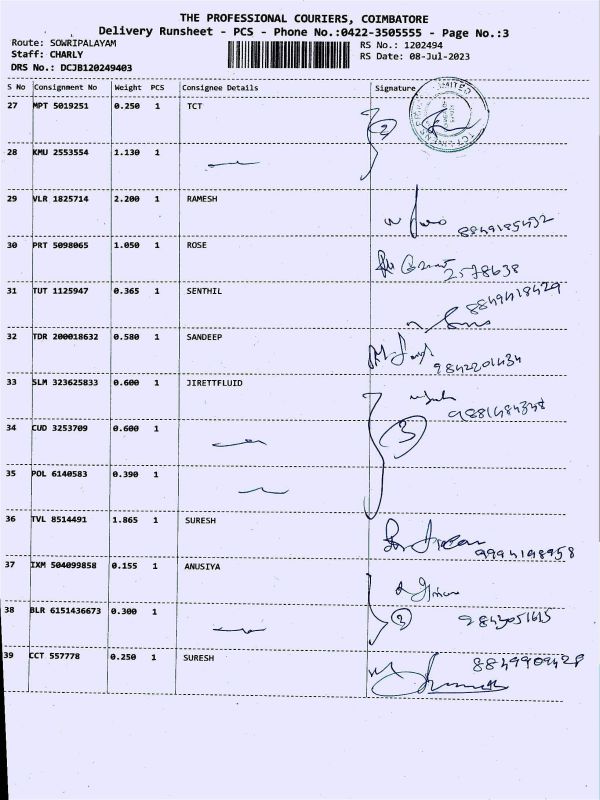 THE PROFESSIONAL COURIERS, COIMBATORE
Delivery Runsheet - PCS - Phone No.:0422-3505555 - Page No.:3
Route: SOWRIPALAYAM
RS No.: 1202494
Staff: CHARLY
RS Date: 08-Jul-2023
DRS No.: DCJB120249403
S No Consignment No Weight PCS Consignee Details Signature
27 MPT 5019251 0.250 1 TCT
2
28 KMU 2553554 1.130 1
29 VLR 1825714 2.200 1 RAMESH
8849185432
30 PRT 5098065 1.050 1 ROSE
2578638
31 TUT 1125947 0.365 1 SENTHIL
8849418429
32 TDR 200018632 0.580 1 SANDEEP
9842201434
33 SLM 323625833 0.600 1 JIRETTFLUID
9881484348
34 CUD 3253709 0.600 1
3
35 POL 6140583 0.390 1
36 TVL 8514491 1.865 1 SURESH
9994198958
37 IXM 504099858 0.155 1 ANUSIYA
38 BLR 6151436673 0.300 1
2
9843051615
39 CCT 557778 0.250 1 SURESH
8849909428